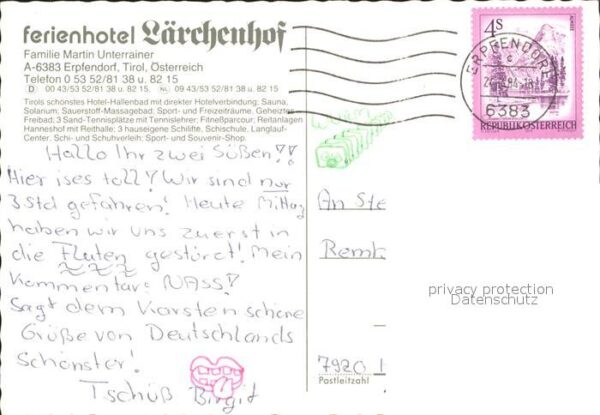 ferienhotel Lärchenhof
Familie Martin Unterrainer
A-6383 Erpfendorf, Tirol, Österreich
Telefon 0 53 52/81 38 u. 82 15
D 00 43/53 52/81 38 u. 82 15. NL 09 43/53 52/81 38 u. 82 15
Tirols schönstes Hotel-Hallenbad mit direkter Hotelverbindung; Sauna,
Solarium; Sauerstoff-Massagebad; Sport- und Freizeiträume; Geheiztes
Freibad; 3 Sand-Tennisplätze mit Tennislehrer; Fitneßparcour; Reitanlagen
Hanneshof mit Reithalle; 3 hauseigene Schilifte, Schischule, Langlauf-
Center, Schi- und Schuhverleih; Sport- und Souvenir-Shop.
Hallo Ihr zwei Süßen!!
Hier ises toll! Wir sind nur
3 Std gefahren! Heute Mittag
haben wir uns zuerst in
die Fluten gestürzt! Mein
Kommentar: NASS!
Sagt dem Karsten schöne
Grüße von Deutschlands
Schönster!
Tschüß Birgit
4S
REPUBLIK ÖSTERREICH
ERPFENDORF
6383
An Ste
Remt
privacy protection
Datenschutz
7920
Postleitzahl